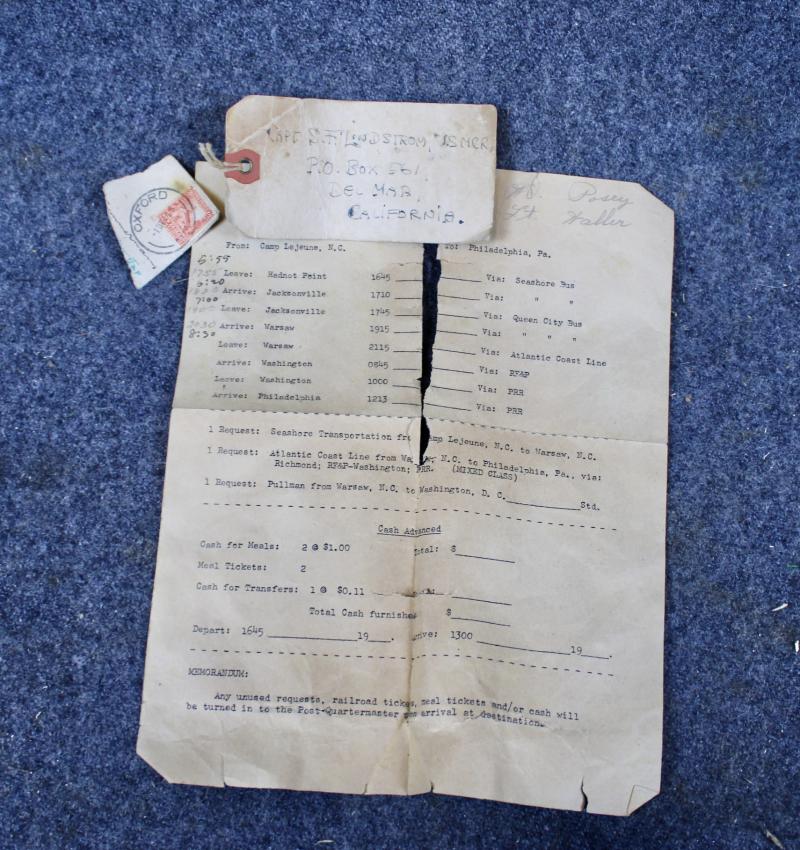 CAPT S.F. LINDSTROM, USMCR
P.O. BOX 561,
DEL MAR,
CALIFORNIA.
OXFORD
Posey
Lt Waller
From: Camp Lejeune, N.C. To: Philadelphia, Pa.
5:55
Leave: Hadnot Point 1645 ______ Via: Seashore Bus
6:20
Arrive: Jacksonville 1710 ______ Via: " "
7:00
Leave: Jacksonville 1745 ______ Via: Queen City Bus
Arrive: Warsaw 1915 ______ Via: " " "
8:30
Leave: Warsaw 2115 ______ Via: Atlantic Coast Line
Arrive: Washington 0845 ______ Via: RF&P
Leave: Washington 1000 ______ Via: PRR
Arrive: Philadelphia 1213 ______ Via: PRR
1 Request: Seashore Transportation from Camp Lejeune, N.C. to Warsaw, N.C.
1 Request: Atlantic Coast Line from N.C. to Philadelphia, Pa., via:
Richmond; RF&P-Washington; PRR. (MIXED CLASS)
1 Request: Pullman from Warsaw, N.C. to Washington, D.C.____________Std.
Cash Advanced
Cash for Meals: 2 @ $1.00 Total: $__________
Meal Tickets: 2
Cash for Transfers: 1 @ $0.11 __________
Total Cash furnished $__________
Depart: 1645 ______________19____. Arrive: 1300 ______________19____.
MEMORANDUM:
Any unused requests, railroad tickets, meal tickets and/or cash will
be turned in to the Post-Quartermaster upon arrival at destination.